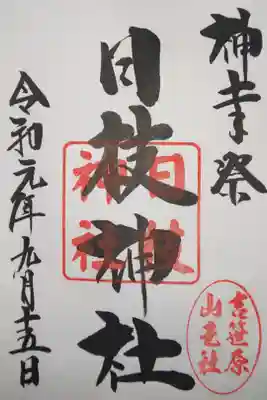 神幸祭
日枝神社
日枝
神社
令和元年九月十五日
吉笹原
山王社